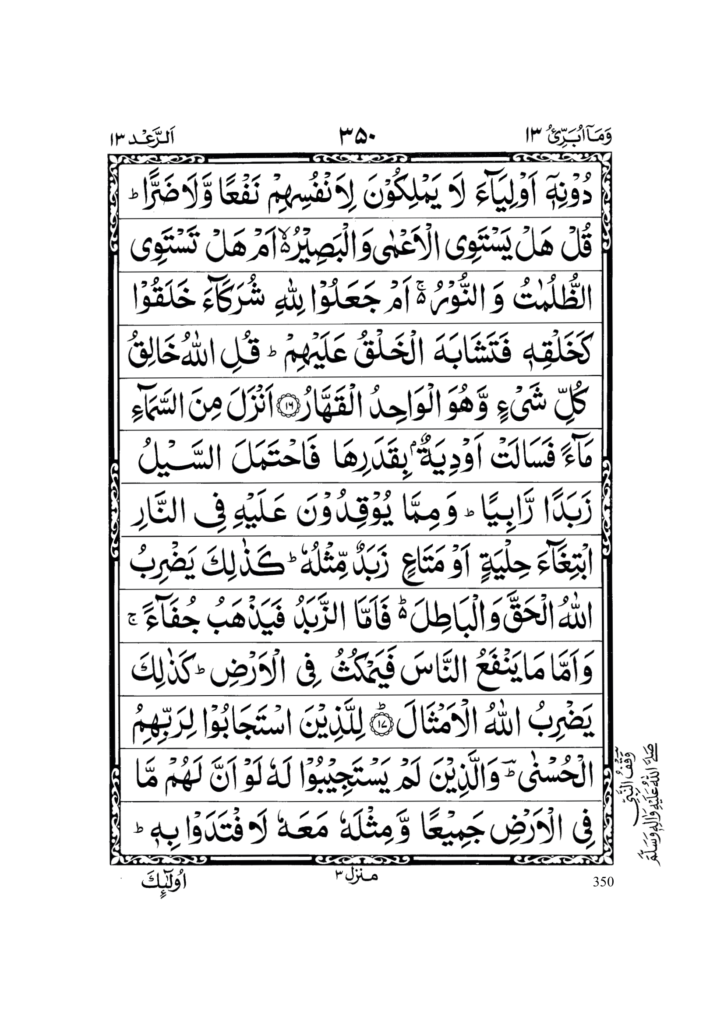 وَمَآ اُبَرِّئُ ١٣
٣٥٠
اَلرَّعْد ١٣
دُوْنِهٖۤ اَوْلِيَآءَ لَا يَمْلِكُوْنَ لِاَنْفُسِهِمْ نَفْعًا وَّلَا ضَرًّا ؕ
قُلْ هَلْ يَسْتَوِى الْاَعْمٰى وَالْبَصِيْرُ ۙ۬ اَمْ هَلْ تَسْتَوِى
الظُّلُمٰتُ وَ النُّوْرُ ۬ۚ اَمْ جَعَلُوْا لِلّٰهِ شُرَكَآءَ خَلَقُوْا
كَخَلْقِهٖ فَتَشَابَهَ الْخَلْقُ عَلَيْهِمْ ؕ قُلِ اللّٰهُ خَالِقُ
كُلِّ شَىْءٍ وَّهُوَ الْوَاحِدُ الْقَهَّارُ ﴿١٦﴾ اَنْزَلَ مِنَ السَّمَآءِ
مَآءً فَسَالَتْ اَوْدِيَةٌۢ بِقَدَرِهَا فَاحْتَمَلَ السَّيْلُ
زَبَدًا رَّابِيًا ؕ وَ مِمَّا يُوْقِدُوْنَ عَلَيْهِ فِى النَّارِ
ابْتِغَآءَ حِلْيَةٍ اَوْ مَتَاعٍ زَبَدٌ مِّثْلُهٗ ؕ كَذٰلِكَ يَضْرِبُ
اللّٰهُ الْحَقَّ وَالْبَاطِلَ ؕ۬ فَاَمَّا الزَّبَدُ فَيَذْهَبُ جُفَآءً ۚ
وَاَمَّا مَا يَنْفَعُ النَّاسَ فَيَمْكُثُ فِى الْاَرْضِ ؕ كَذٰلِكَ
يَضْرِبُ اللّٰهُ الْاَمْثَالَ ﴿ؕ١٧﴾ لِلَّذِيْنَ اسْتَجَابُوْا لِرَبِّهِمُ
الْحُسْنٰى ؕؔ وَالَّذِيْنَ لَمْ يَسْتَجِيْبُوْا لَهٗ لَوْ اَنَّ لَهُمْ مَّا
فِى الْاَرْضِ جَمِيْعًا وَّمِثْلَهٗ مَعَهٗ لَافْتَدَوْا بِهٖ ؕ
وقف النبى
صلى الله عليه واله وسلم
350
منزل ٣
اُولٰٓئِكَ